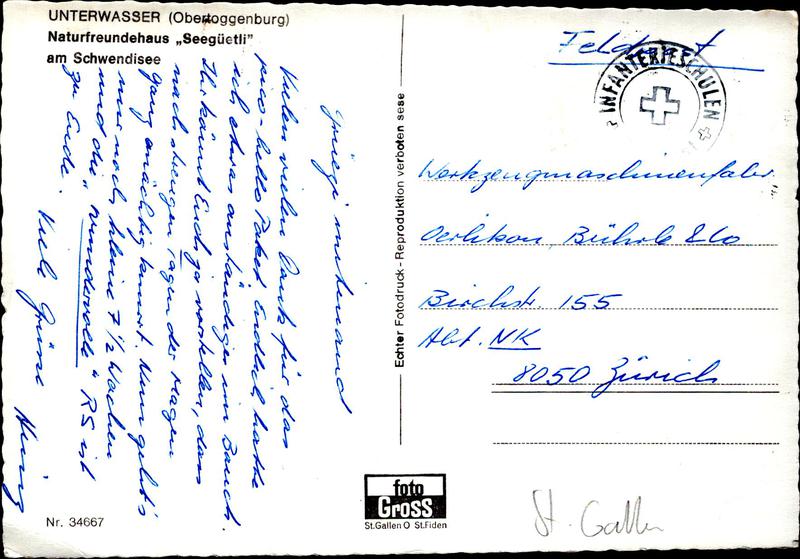 UNTERWASSER (Obertoggenburg)
Naturfreundehaus „Seegüetli"
am Schwendisee
Grüezi mitenand
Vielen vielen Dank für das
pico-bello Paket. Endlich hatte
ich etwas anständiges im Bauch.
Ihr könnt Euch ja vorstellen, dass
nach strengen Tagen der Magen
ganz mächtig knurrt. Nun geht's
nur noch kleine 7 1/2 Wochen
und die "wundervolle" RS ist
zu Ende.
Viele Grüsse
Heinz
Echter Fotodruck - Reproduktion verboten sese
Feldpost
INFANTERIESCHULEN
Werkzeugmaschinenfabr.
Oerlikon, Bührle & Co
Birchstr. 155
Abt. NK
8050 Zürich
foto
Gross
St.Gallen O St.Fiden
Nr. 34667
St. Gallen